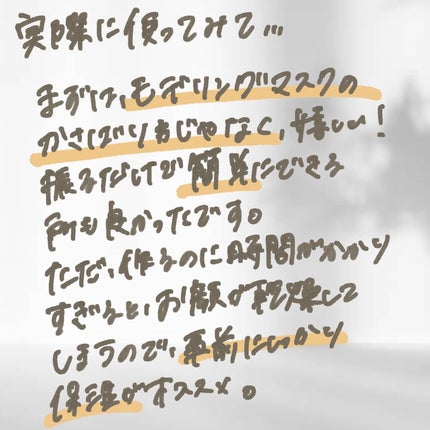 実際に使ってみて...
まずは、モデリングマスクの
かさばり方じゃなく、嬉しい!
振るだけで簡単にできる
所も良かったです。
ただ、作るのに時間がかかり
すぎると、お顔が乾燥して
しまうので、事前にしっかり
保湿がオススメ。